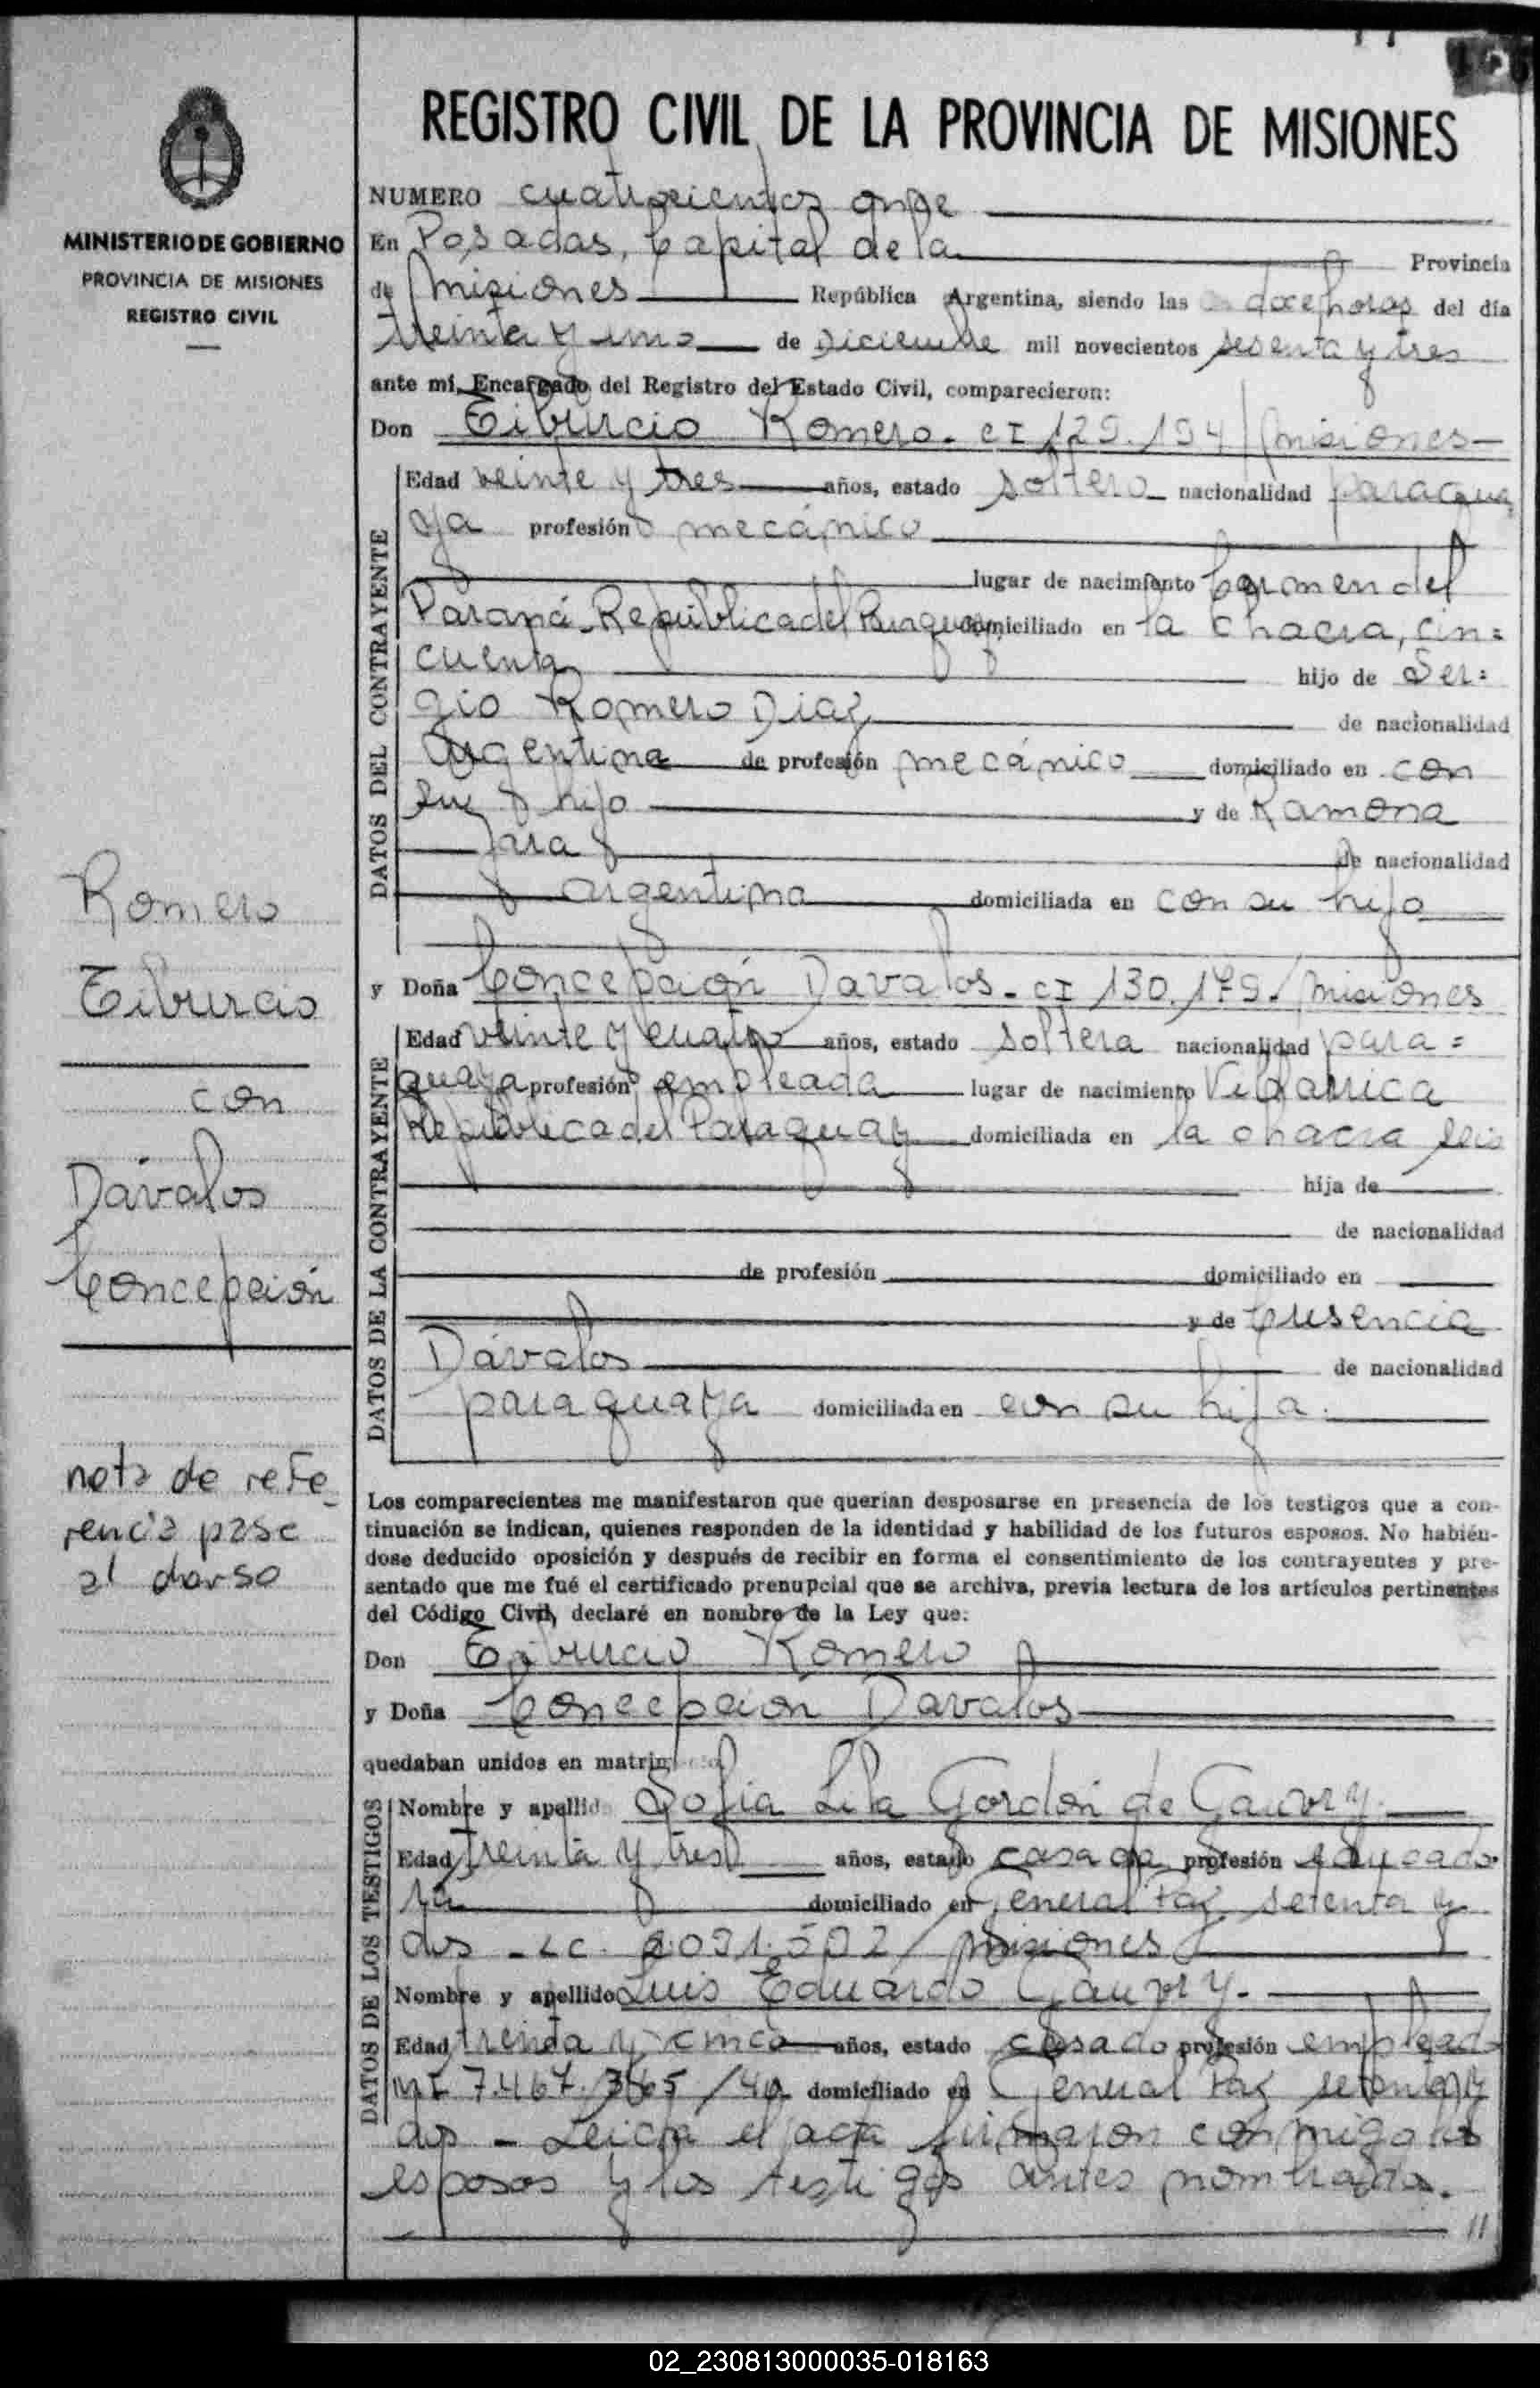 REGISTRO CIVIL DE LA PROVINCIA DE MISIONES
MINISTERIO DE GOBIERNO
PROVINCIA DE MISIONES
REGISTRO CIVIL
NUMERO cuatrocientos onse
En Posadas, Capital de la Provincia
de Misiones República Argentina, siendo las doce horas del día
treinta y uno de Diciembre mil novecientos sesenta y tres
ante mí, Encargado del Registro del Estado Civil, comparecieron:
Don Tiburcio Romero. CI 129.194/Misiones
DATOS DEL CONTRAYENTE
Edad veinte y tres años, estado soltero nacionalidad paragua
ya profesión mecánico
lugar de nacimiento Carmen del
Paraná-República del Paraguay domiciliado en la chacra, cin=
cuenta hijo de Ser=
gio Romero Diaz de nacionalidad
Argentina de profesión mecánico domiciliado en con
su hijo y de Ramona
Jara de nacionalidad
argentina domiciliada en con su hijo
y Doña Concepción Davalos. CI 130.179. Misiones
DATOS DE LA CONTRAYENTE
Edad veinte y cuatro años, estado soltera nacionalidad para=
guaya profesión empleada lugar de nacimiento Villarrica
República del Paraguay domiciliada en la chacra seis
hija de
de nacionalidad
de profesión domiciliado en
y de Cresencia
Dávalos de nacionalidad
paraguaya domiciliada en con su hija.
Los comparecientes me manifestaron que querían desposarse en presencia de los testigos que a con-
tinuación se indican, quienes responden de la identidad y habilidad de los futuros esposos. No habién-
dose deducido oposición y después de recibir en forma el consentimiento de los contrayentes y pre-
sentado que me fué el certificado prenupcial que se archiva, previa lectura de los artículos pertinentes
del Código Civil, declaré en nombre de la Ley que:
Don Tiburcio Romero
y Doña Concepción Davalos
quedaban unidos en matrimonio
DATOS DE LOS TESTIGOS
Nombre y apellido Sofia Lila Gordon de Gauvry
Edad treinta y tres años, estado casada profesión educado
ra domiciliado en General Paz setenta y
dos - LC. Misiones
Nombre y apellido Luis Eduardo Gauvry.
Edad treinta y cinco años, estado casado profesión empleado
MI 7.467.365/49 domiciliado en General Paz setenta y
dos - Leida el acta firmaron conmigo los
esposos y los testigos antes nombrados.
Romero
Tiburcio
con
Dávalos
Concepción
nota de refe_
rencia pase
al dorso
02_230813000035-018163